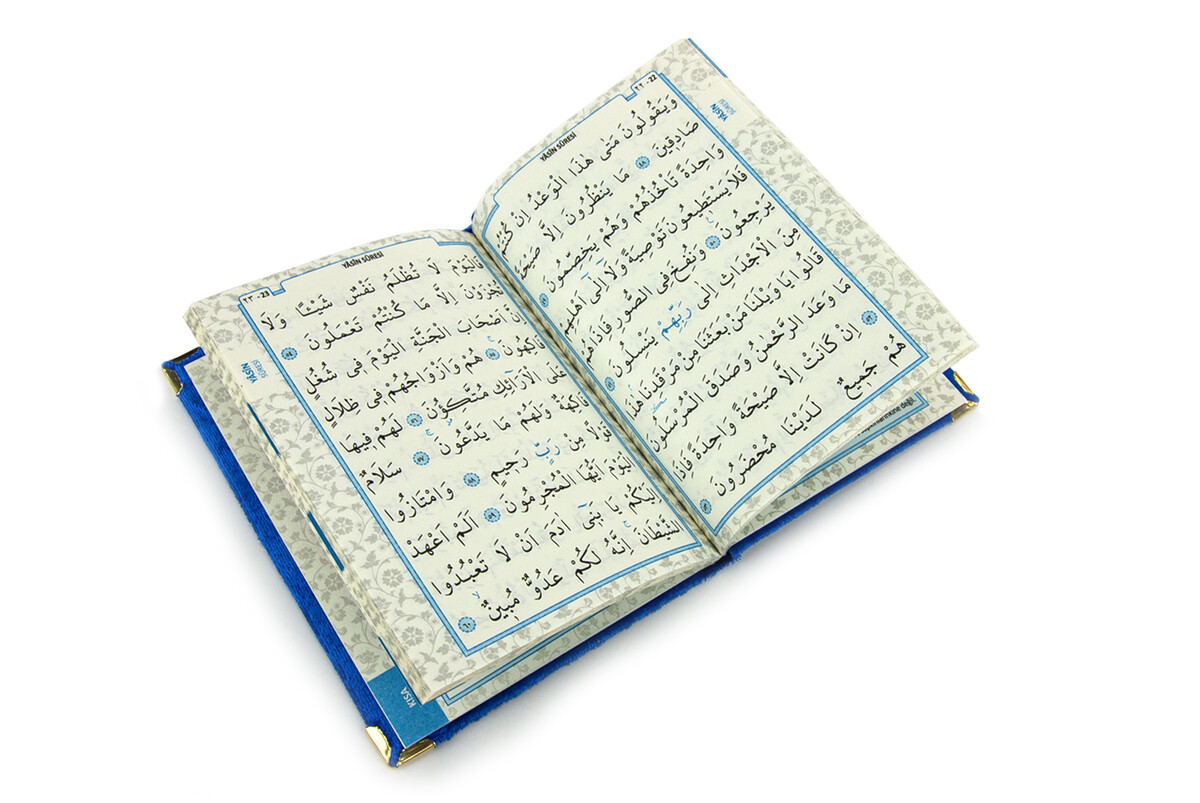 ٢٢ - 22
YÂSİN SÛRESİ
YÂSİN
SÛRESİ
وَيَقُولُونَ مَتٰى هٰذَا الْوَعْدُ اِنْ كُنْتُمْ
صَادِقٖينَ ٤٨ مَا يَنْظُرُونَ اِلَّا صَيْحَةً
وَاحِدَةً تَاْخُذُهُمْ وَهُمْ يَخِصِّمُونَ ٤٩
فَلَا يَسْتَطٖيعُونَ تَوْصِيَةً وَلَٓا اِلٰٓى اَهْلِهِمْ
يَرْجِعُونَ ٥٠ وَنُفِخَ فِى الصُّورِ فَاِذَا هُمْ
مِنَ الْاَجْدَاثِ اِلٰى رَبِّهِمْ يَنْسِلُونَ ٥١
قَالُوا يَا وَيْلَنَا مَنْ بَعَثَنَا مِنْ مَرْقَدِنَا هٰذَا
مَا وَعَدَ الرَّحْمٰنُ وَصَدَقَ الْمُرْسَلُونَ ٥٢
اِنْ كَانَتْ اِلَّا صَيْحَةً وَاحِدَةً فَاِذَا
هُمْ جَمٖيعٌ لَدَيْنَا مُحْضَرُونَ ٥٣
٢٣ - 23
YÂSİN SÛRESİ
YÂSİN
SÛRESİ
فَالْيَوْمَ لَا تُظْلَمُ نَفْسٌ شَيْـًٔا وَلَا
تُجْزَوْنَ اِلَّا مَا كُنْتُمْ تَعْمَلُونَ ٥٤
اِنَّ اَصْحَابَ الْجَنَّةِ الْيَوْمَ فٖى شُغُلٍ
فَاكِهُونَ ٥٥ هُمْ وَاَزْوَاجُهُمْ فٖى ظِلَالٍ
عَلَى الْاَرَٓائِكِ مُتَّكِؤُ۫نَ ٥٦ لَهُمْ فٖيهَا
فَاكِهَةٌ وَلَهُمْ مَا يَدَّعُونَ ٥٧ سَلَامٌ
قَوْلًا مِنْ رَبٍّ رَحٖيمٍ ٥٨ وَامْتَازُوا
الْيَوْمَ اَيُّهَا الْمُجْرِمُونَ ٥٩ اَلَمْ اَعْهَدْ
اِلَيْكُمْ يَا بَنٖٓى اٰدَمَ اَنْ لَا تَعْبُدُوا
الشَّيْطَانَ اِنَّهُ لَكُمْ عَدُوٌّ مُبٖينٌ ٦٠
KISA